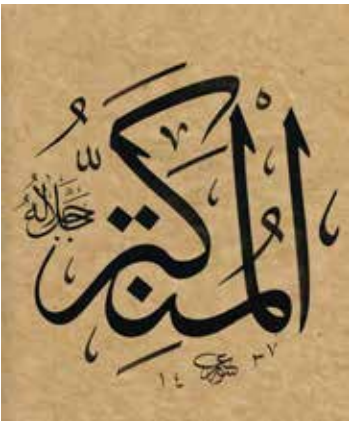 المُتَكَبِّرُ
جَلَّ جَلَالُهُ
١٤٣٧